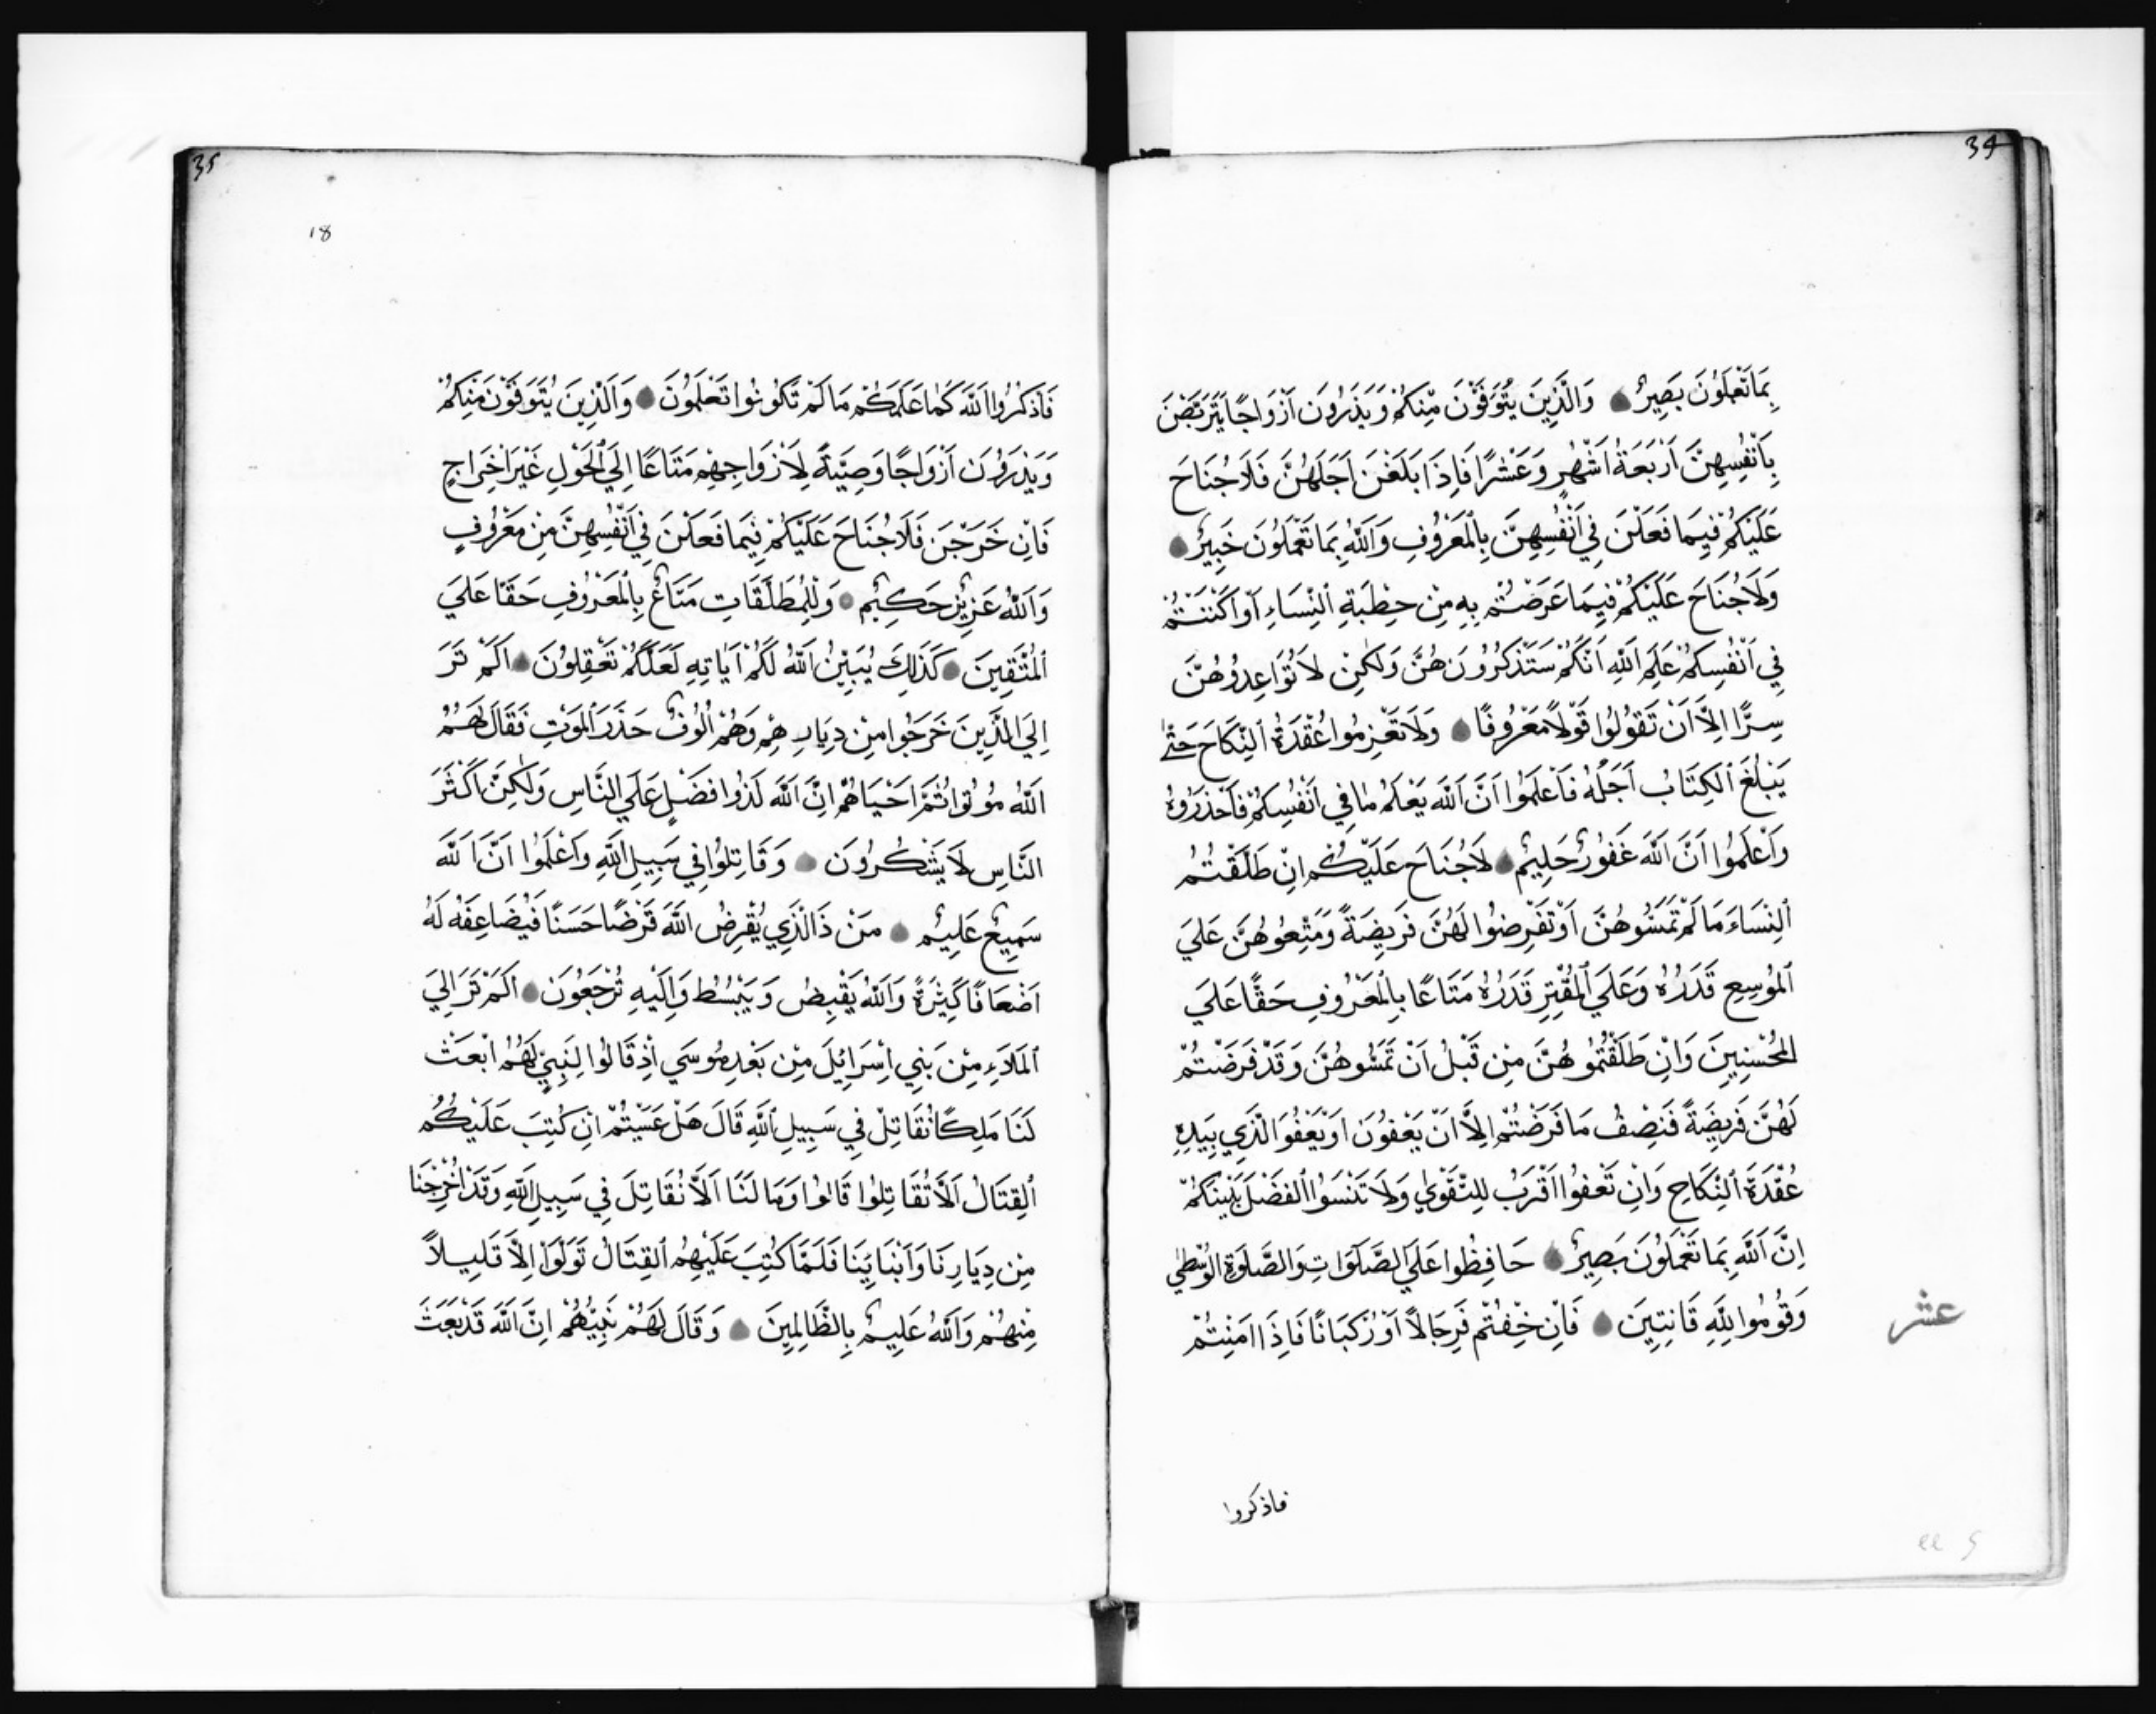 34
بِمَا تَعْمَلُونَ بَصِيرٌ وَالَّذِينَ يُتَوَفَّوْنَ مِنْكُمْ وَيَذَرُونَ اَزْوَاجًا يَتَرَبَّصْنَ
بِاَنْفُسِهِنَّ اَرْبَعَةَ اَشْهُرٍ وَعَشْرًا فَاِذَا بَلَغْنَ اَجَلَهُنَّ فَلَا جُنَاحَ
عَلَيْكُمْ فِيمَا فَعَلْنَ فِي اَنْفُسِهِنَّ بِالْمَعْرُوفِ وَاللّٰهُ بِمَا تَعْمَلُونَ خَبِيرٌ
وَلَا جُنَاحَ عَلَيْكُمْ فِيمَا عَرَّضْتُمْ بِهِ مِنْ خِطْبَةِ النِّسَاءِ اَوْ اَكْنَنْتُمْ
فِي اَنْفُسِكُمْ عَلِمَ اللّٰهُ اَنَّكُمْ سَتَذْكُرُونَهُنَّ وَلٰكِنْ لَا تُوَاعِدُوهُنَّ
سِرًّا اِلَّا اَنْ تَقُولُوا قَوْلًا مَعْرُوفًا وَلَا تَعْزِمُوا عُقْدَةَ النِّكَاحِ حَتّٰى
يَبْلُغَ الْكِتَابُ اَجَلَهُ فَاعْلَمُوا اَنَّ اللّٰهَ يَعْلَمُ مَا فِي اَنْفُسِكُمْ فَاحْذَرُوهُ
وَاعْلَمُوا اَنَّ اللّٰهَ غَفُورٌ حَلِيمٌ لَا جُنَاحَ عَلَيْكُمْ اِنْ طَلَّقْتُمُ
النِّسَاءَ مَا لَمْ تَمَسُّوهُنَّ اَوْ تَفْرِضُوا لَهُنَّ فَرِيضَةً وَمَتِّعُوهُنَّ عَلَي
الْمُوسِعِ قَدَرُهُ وَعَلَي الْمُقْتِرِ قَدَرُهُ مَتَاعًا بِالْمَعْرُوفِ حَقًّا عَلَي
الْمُحْسِنِينَ وَاِنْ طَلَّقْتُمُوهُنَّ مِنْ قَبْلِ اَنْ تَمَسُّوهُنَّ وَقَدْ فَرَضْتُمْ
لَهُنَّ فَرِيضَةً فَنِصْفُ مَا فَرَضْتُمْ اِلَّا اَنْ يَعْفُونَ اَوْ يَعْفُوَا الَّذِي بِيَدِهِ
عُقْدَةُ النِّكَاحِ وَاِنْ تَعْفُوا اَقْرَبُ لِلتَّقْوٰي وَلَا تَنْسَوُا الْفَضْلَ بَيْنَكُمْ
اِنَّ اللّٰهَ بِمَا تَعْمَلُونَ بَصِيرٌ حَافِظُوا عَلَي الصَّلَوَاتِ وَالصَّلٰوةِ الْوُسْطٰي
وَقُومُوا لِلّٰهِ قَانِتِينَ فَاِنْ خِفْتُمْ فَرِجَالًا اَوْ رُكْبَانًا فَاِذَا اَمِنْتُمْ
عشر
فاذكروا
35
18
فَاذْكُرُوا اللّٰهَ كَمَا عَلَّمَكُمْ مَا لَمْ تَكُونُوا تَعْلَمُونَ وَالَّذِينَ يُتَوَفَّوْنَ مِنْكُمْ
وَيَذَرُونَ اَزْوَاجًا وَصِيَّةً لِاَزْوَاجِهِمْ مَتَاعًا اِلَي الْحَوْلِ غَيْرَ اِخْرَاجٍ
فَاِنْ خَرَجْنَ فَلَا جُنَاحَ عَلَيْكُمْ فِيمَا فَعَلْنَ فِي اَنْفُسِهِنَّ مِنْ مَعْرُوفٍ
وَاللّٰهُ عَزِيزٌ حَكِيمٌ وَلِلْمُطَلَّقَاتِ مَتَاعٌ بِالْمَعْرُوفِ حَقًّا عَلَي
الْمُتَّقِينَ كَذٰلِكَ يُبَيِّنُ اللّٰهُ لَكُمْ اٰيَاتِهِ لَعَلَّكُمْ تَعْقِلُونَ اَلَمْ تَرَ
اِلَي الَّذِينَ خَرَجُوا مِنْ دِيَارِهِمْ وَهُمْ اُلُوفٌ حَذَرَ الْمَوْتِ فَقَالَ لَهُمُ
اللّٰهُ مُوتُوا ثُمَّ اَحْيَاهُمْ اِنَّ اللّٰهَ لَذُوا فَضْلٍ عَلَي النَّاسِ وَلٰكِنَّ اَكْثَرَ
النَّاسِ لَا يَشْكُرُونَ وَقَاتِلُوا فِي سَبِيلِ اللّٰهِ وَاعْلَمُوا اَنَّ اللّٰهَ
سَمِيعٌ عَلِيمٌ مَنْ ذَا الَّذِي يُقْرِضُ اللّٰهَ قَرْضًا حَسَنًا فَيُضَاعِفَهُ لَهُ
اَضْعَافًا كَثِيرَةً وَاللّٰهُ يَقْبِضُ وَيَبْسُطُ وَاِلَيْهِ تُرْجَعُونَ اَلَمْ تَرَ اِلَي
الْمَلَاءِ مِنْ بَنِي اِسْرَائِلَ مِنْ بَعْدِ مُوسَي اِذْ قَالُوا لِنَبِيٍّ لَهُمُ ابْعَثْ
لَنَا مَلِكًا نُقَاتِلْ فِي سَبِيلِ اللّٰهِ قَالَ هَلْ عَسَيْتُمْ اِنْ كُتِبَ عَلَيْكُمُ
الْقِتَالُ اَلَّا تُقَاتِلُوا قَالُوا وَمَا لَنَا اَلَّا نُقَاتِلَ فِي سَبِيلِ اللّٰهِ وَقَدْ اُخْرِجْنَا
مِنْ دِيَارِنَا وَاَبْنَائِنَا فَلَمَّا كُتِبَ عَلَيْهِمُ الْقِتَالُ تَوَلَّوْا اِلَّا قَلِيلًا
مِنْهُمْ وَاللّٰهُ عَلِيمٌ بِالظَّالِمِينَ وَقَالَ لَهُمْ نَبِيُّهُمْ اِنَّ اللّٰهَ قَدْ بَعَثَ